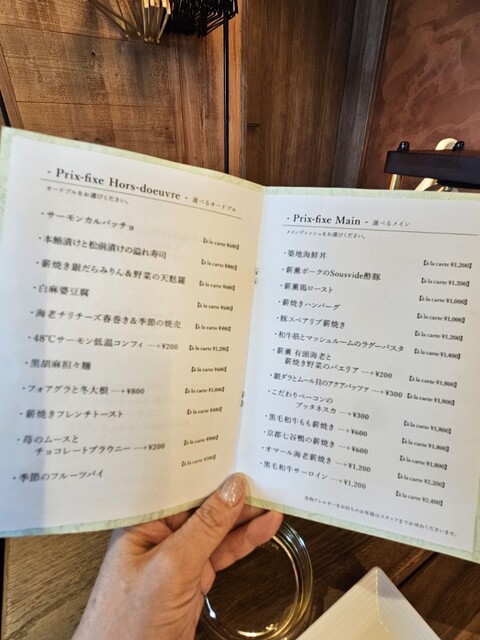 - Prix-fixe Hors-doeuvre - 選べるオードブル
オードブルをお選びください。
・サーモンカルパッチョ
【à la carte ¥680】
・本鮪漬けと松前漬けの溢れ寿司
【à la carte ¥880】
・薪焼き銀だらみりん&野菜の天麩羅
・白麻婆豆腐
・海老チリチーズ春巻き&季節の焼売
・48℃サーモン低温コンフィ ―+¥200
・黒胡麻担々麺
・フォアグラと冬大根 ―+¥800
・薪焼きフレンチトースト
・苺のムースと
チョコレートブラウニー ―+¥200
・季節のフルーツパイ
- Prix-fixe Main - 選べるメイン
メインディッシュをお選びください。
・築地海鮮丼
【à la carte ¥1,200】
・薪薫ポークのSousvide酢豚
【à la carte ¥1,200】
・薪薫鶏ロースト
【à la carte ¥1,000】
・薪焼きハンバーグ
【à la carte ¥1,000】
・豚スペアリブ薪焼き
【à la carte ¥1,200】
・和牛筋とマッシュルームのラグーパスタ
【à la carte ¥1,400】
・薪薫 有頭海老と
薪焼き野菜のパエリア ―+¥200
【à la carte ¥1,800】
・銀ダラとムール貝のアクアパッツァ ―+¥300
【à la carte ¥1,800】
・こだわりベーコンの
プッタネスカ ―+¥300
・黒毛和牛もも薪焼き ―+¥600
【à la carte ¥1,800】
・京都七谷鴨の薪焼き ―+¥600
【à la carte ¥1,800】
・オマール海老薪焼き ―+¥1,200
【à la carte ¥2,200】
・黒毛和牛サーロイン ―+¥1,200
【à la carte ¥2,400】
食物アレルギーをお持ちのお客様はスタッフまでお尋ねくださいませ。